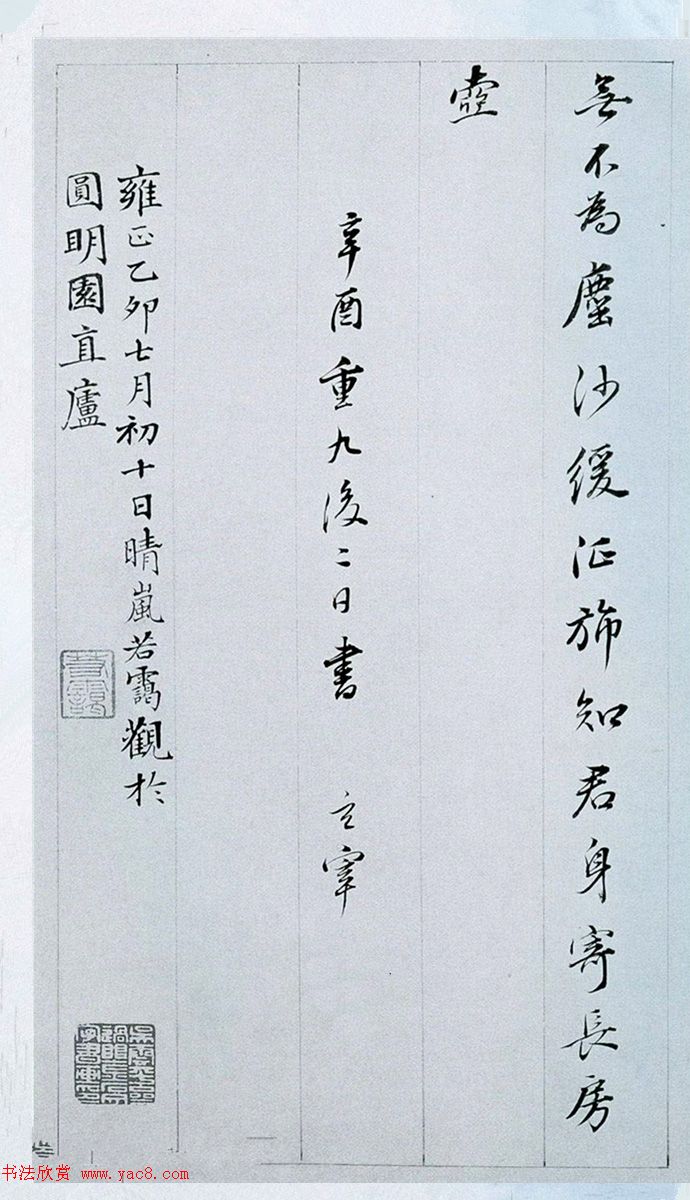 無不為塵沙緩征旆知君身寄長房
壺
辛酉重九後二日書 玄宰
雍正乙卯七月初十日晴嵐若靄觀於
圓明園直廬
若靄
书法欣赏 www.yac8.com